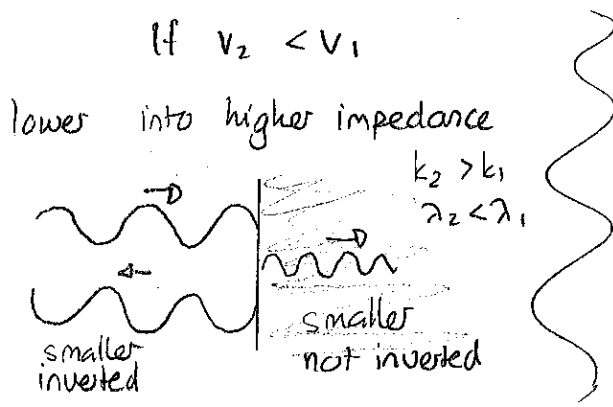 If v₂ < v₁
lower into higher impedance
k₂ > k₁
λ₂ < λ₁
smaller
inverted
smaller
not inverted